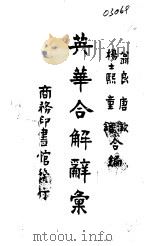 03069
翁良 唐
楊士熙 童 合編
英華合解辭彙
商務印書館發行
mtoou.info